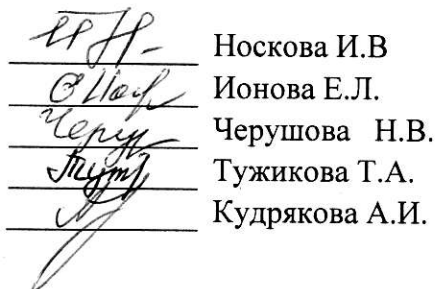 Носкова И.В
Ионова Е.Л.
Черушова Н.В.
Тужикова Т.А.
Кудрякова А.И.